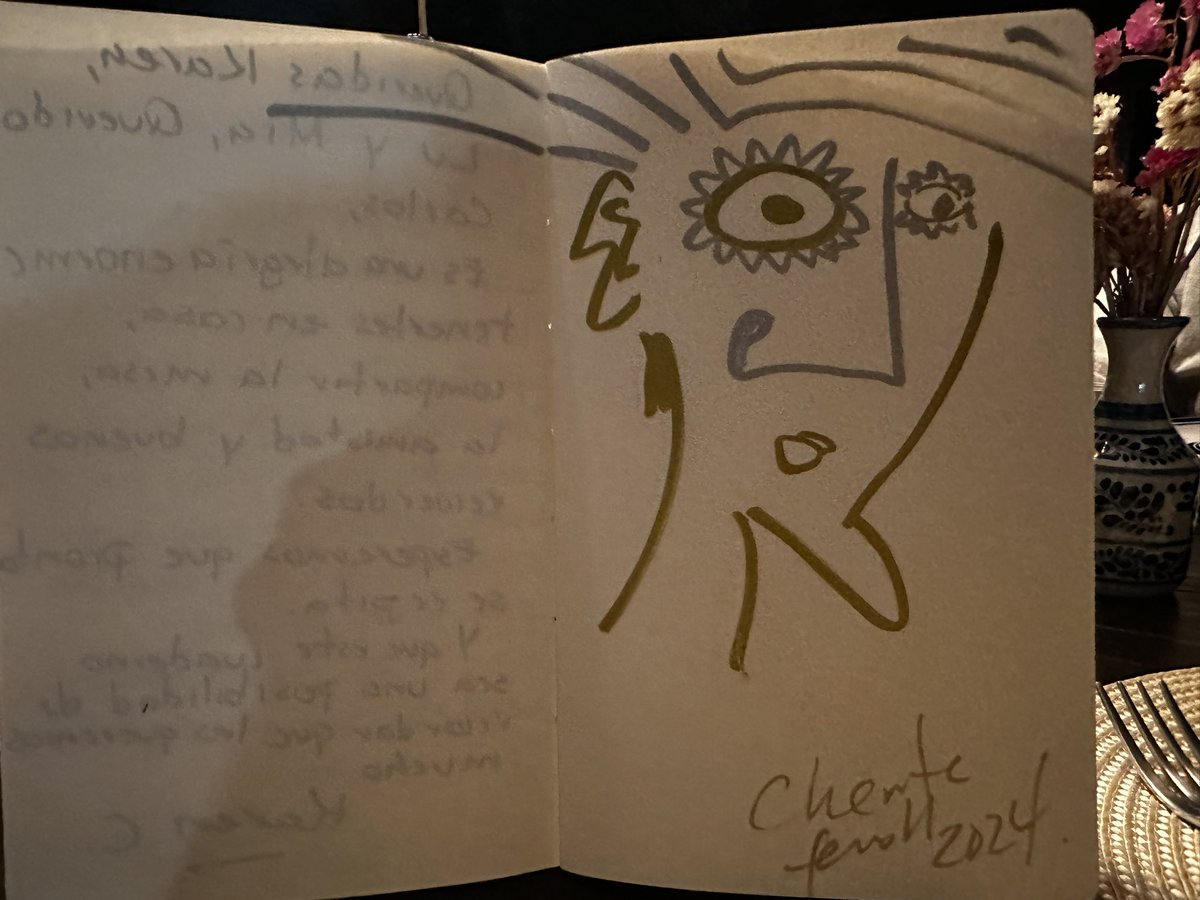 Queridas Karen,
Lu y Mia, Querido
Carlos,
Es una alegría enorme
tenerles en casa,
compartir la mesa,
la amistad y buenos
recuerdos
Esperemos que pronto
se repita.
Y que este cuaderno
sea una posibilidad de
recordar que los queremos
mucho
Karen C.
Chente
2024.